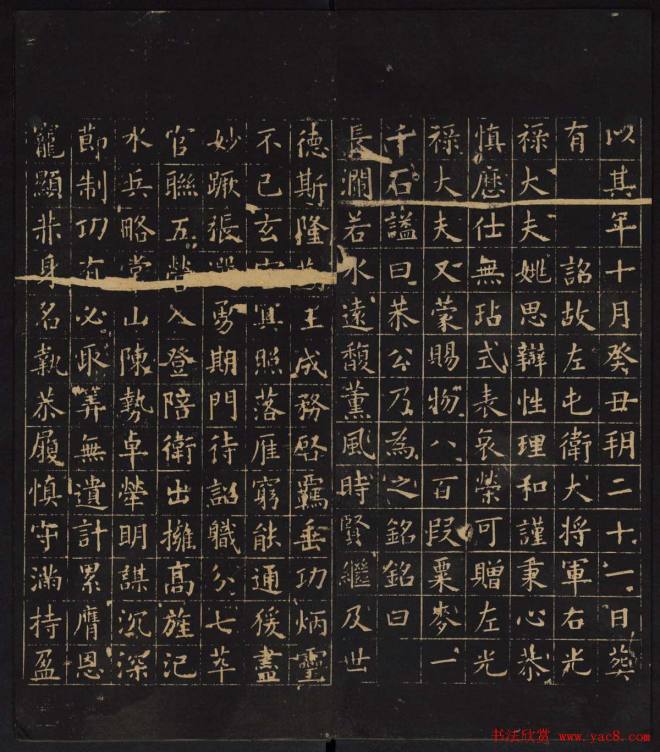 以其年十月癸丑朔二十一日葬
有 詔故左屯衛大將軍右光
禄大夫姚思辯性理和謹秉心恭
慎歷仕無玷式表哀榮可贈左光
禄大夫又蒙賜物八百段粟麥一
千石謚曰恭公乃為之銘銘曰
長瀾若水遠馥薰風時賢繼及世
德斯隆王成務啓霸垂功炳靈
不已玄其照落雁窮能通猨盡
妙蹶張勇期門待詔職分七萃
官聯五營入登陪衛出擁高旌氾
水兵略常山陳勢卓犖明謀沉深
節制功有必取筭無遺計累膺恩
寵顯非身名執恭履慎守滿持盈
书法欣赏 www.yac8.com